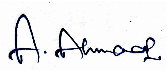 A. Ahmad